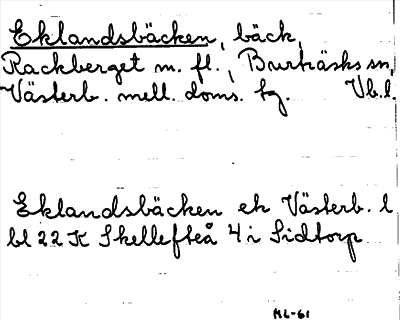 Eklandsbäcken, bäck,
Rackberget m. fl., Burträsks sn,
Västerb. mell. doms. tg. Vb.l.
Eklandsbäcken ek Västerb. l
bl 22 K Skellefteå 4 i Sidtorp
ML-61